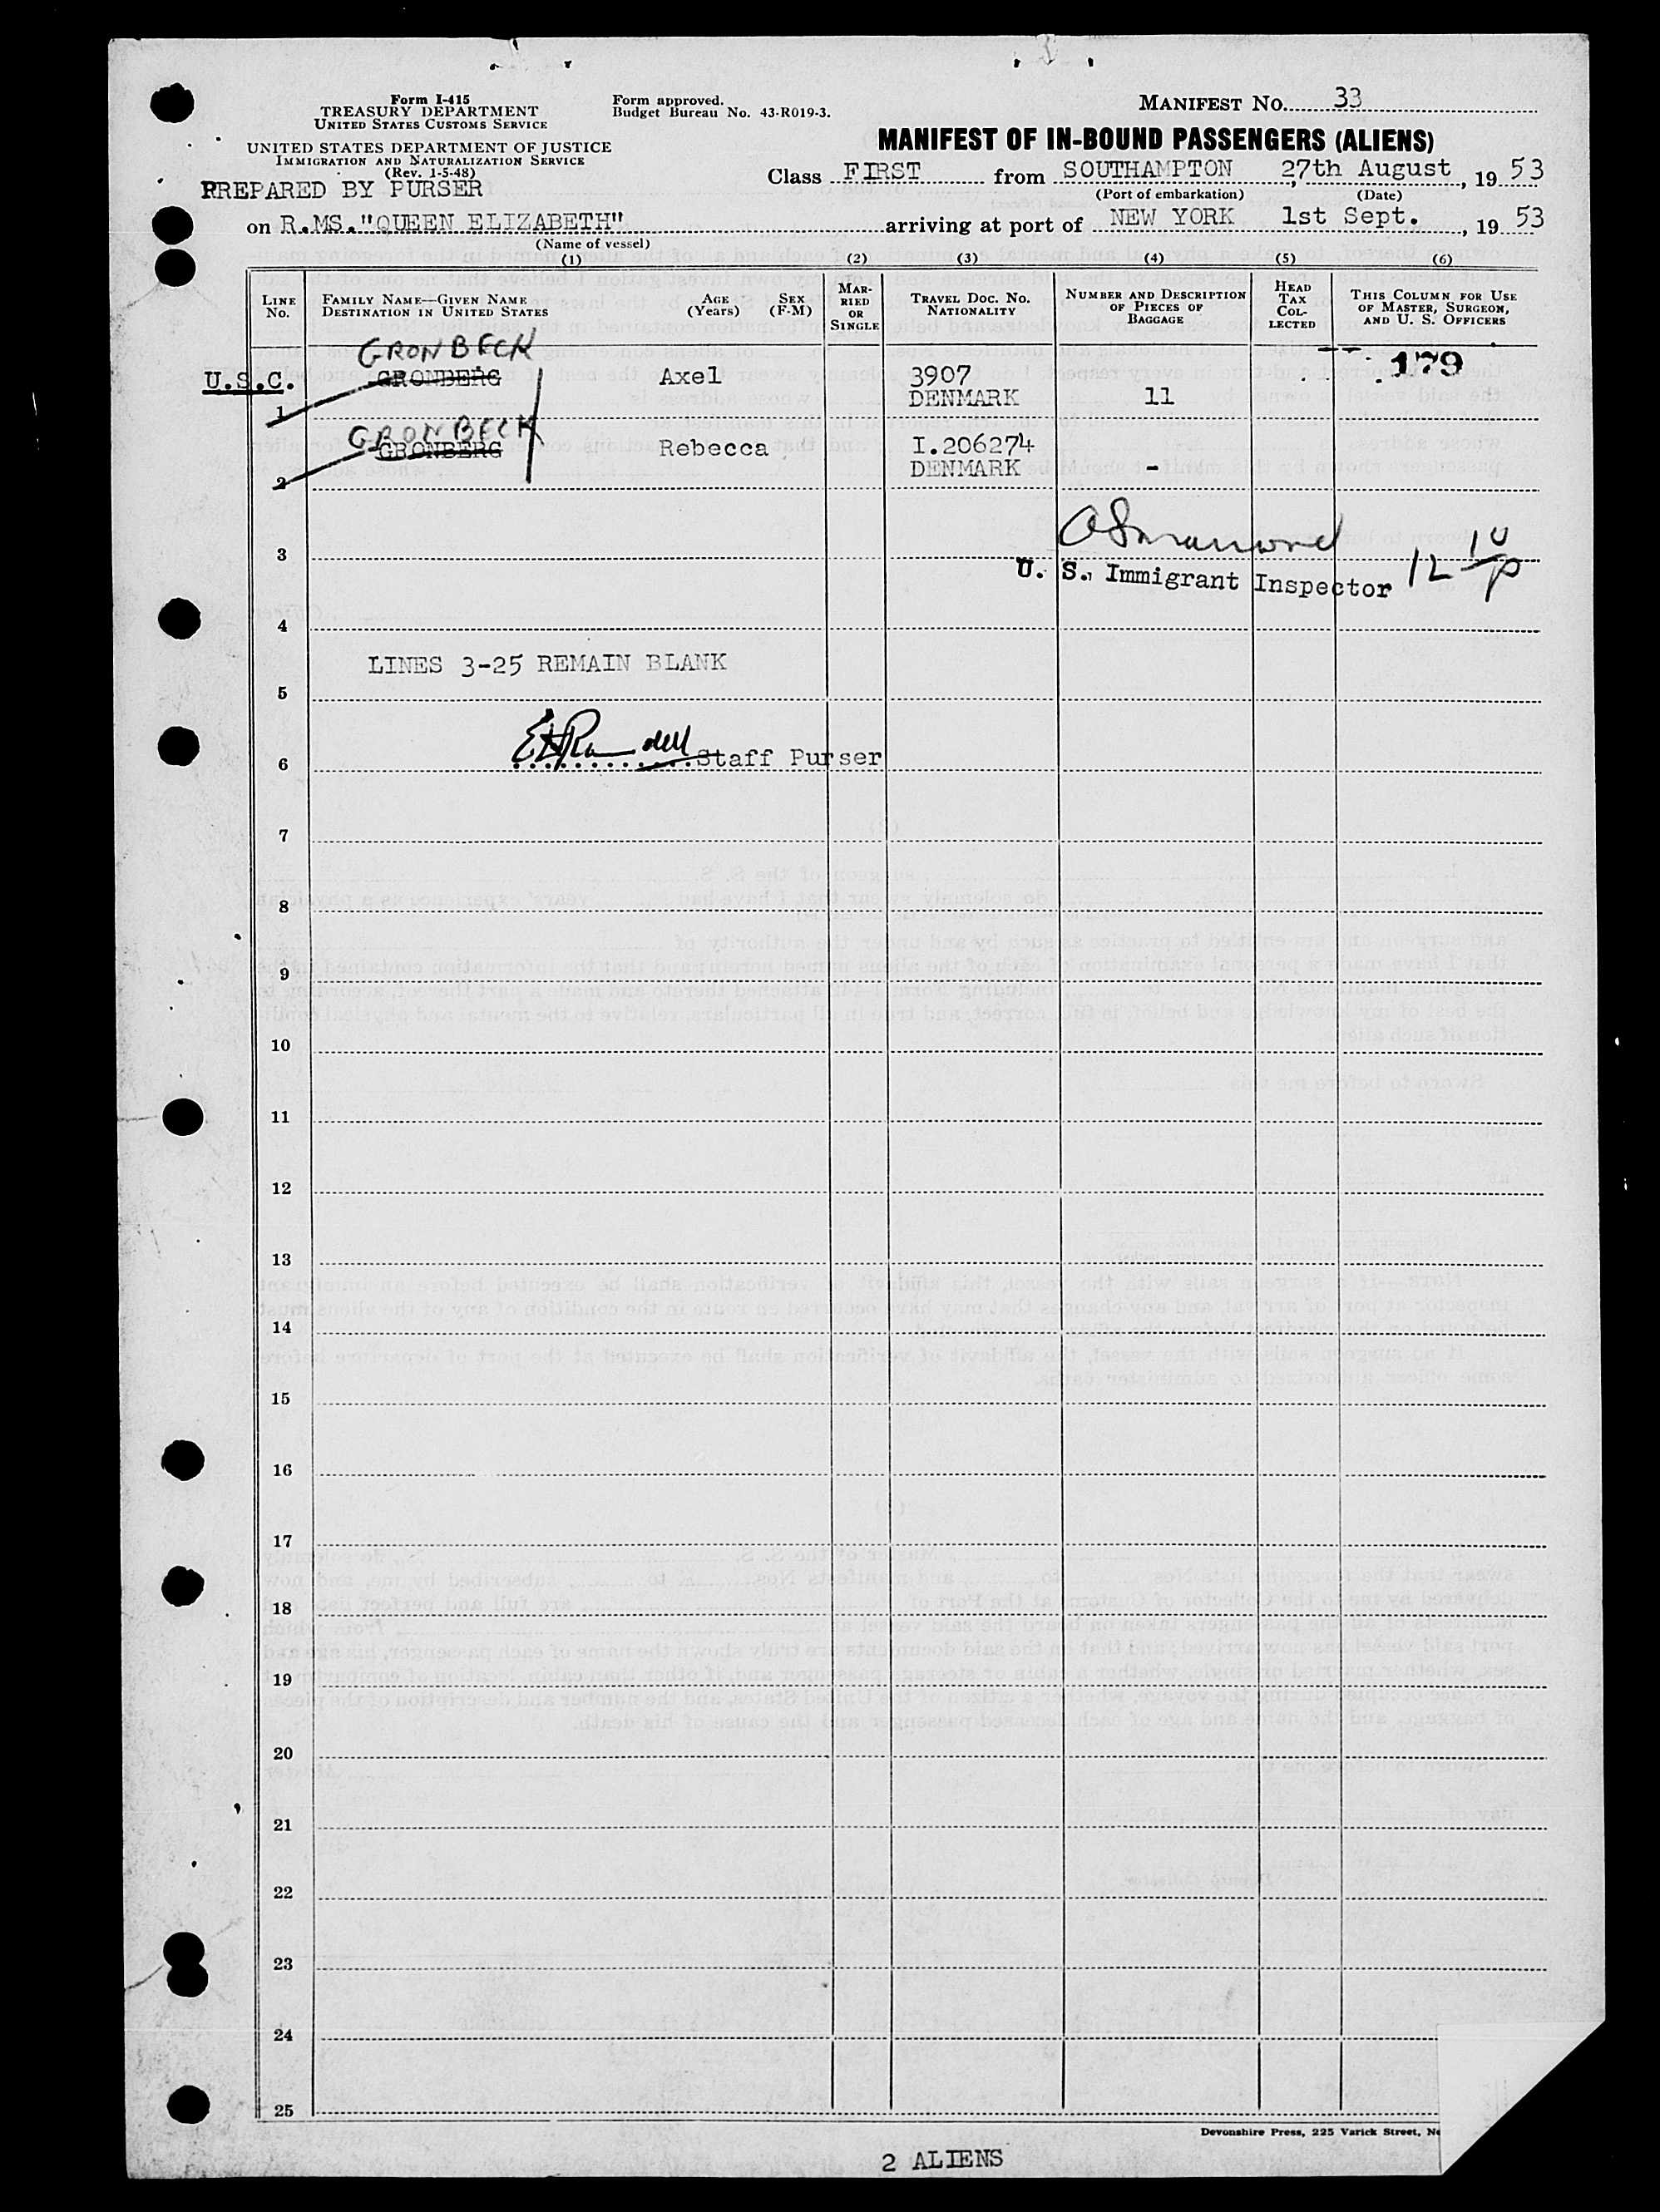 Form I-415
TREASURY DEPARTMENT
UNITED STATES CUSTOMS SERVICE
UNITED STATES DEPARTMENT OF JUSTICE
IMMIGRATION AND NATURALIZATION SERVICE
(Rev. 1-5-48)
PREPARED BY PURSER
Form approved.
Budget Bureau No. 43-R019-3.
MANIFEST NO. 33
MANIFEST OF IN-BOUND PASSENGERS (ALIENS)
Class FIRST from SOUTHAMPTON, 27th August, 1953
(Port of embarkation) (Date)
on R.MS."QUEEN ELIZABETH" arriving at port of NEW YORK 1st Sept., 1953
(Name of vessel)
(1) (2) (3) (4) (5) (6)
LINE NO.
FAMILY NAME—GIVEN NAME
DESTINATION IN UNITED STATES
AGE (Years)
SEX (F-M)
MARRIED OR SINGLE
TRAVEL DOC. NO.
NATIONALITY
NUMBER AND DESCRIPTION
OF PIECES OF
BAGGAGE
HEAD
TAX
COLLECTED
THIS COLUMN FOR USE
OF MASTER, SURGEON,
AND U. S. OFFICERS
GRONBECK
179
U.S.C. GRONBERG Axel 3907
1 DENMARK 11
GRONBECK
GRONBERG Rebecca I.206274
2 DENMARK -
3
U. S. Immigrant Inspector
4
LINES 3-25 REMAIN BLANK
5
6 Staff Purser
7
8
9
10
11
12
13
14
15
16
17
18
19
20
21
22
23
24
25
Devonshire Press, 225 Varick Street,
2 ALIENS